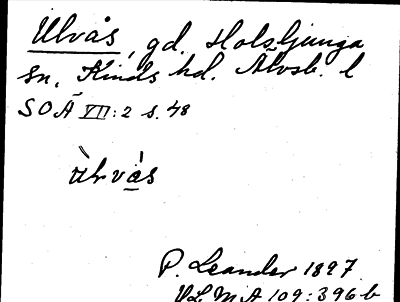 Ulvås, gd. Holsljunga
sn. Kinds hd. Älvsb. l
SOÄ VII:2 s. 48
P. Leander 1897
VLMA 109:396b